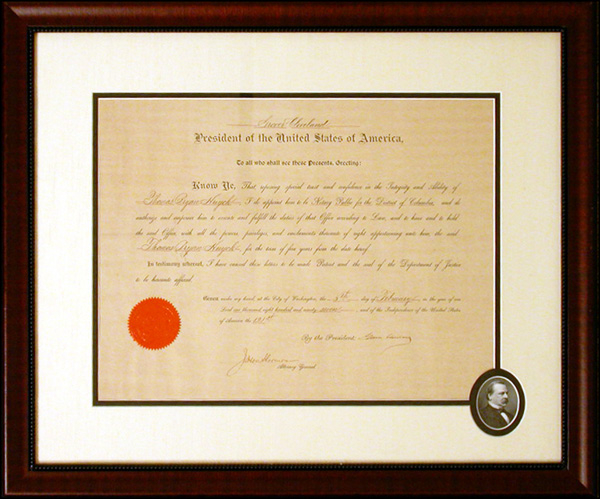 Grover Cleveland
President of the United States of America,
To all who shall see these Presents, Greeting:
Know Ye, That reposing special trust and confidence in the Integrity and Ability of
Thomas I do appoint him to be Notary Public for the District of Columbia, and do
authorize and empower him to execute and fulfill the duties of that Office according to Law, and to have and to hold
the said Office, with all the powers, privileges, and emoluments thereunto of right appertaining unto him the said
Thomas for the term of five years from the date hereof.
In testimony whereof, I have caused these letters to be made Patent and the seal of the Department of Justice
to be hereunto affixed.
Given under my hand, at the City of Washington, the 8th day of February, in the year of our
Lord one thousand eight hundred and ninety seven and of the Independence of the United States
of America, the 121st
By the President,
Attorney General.